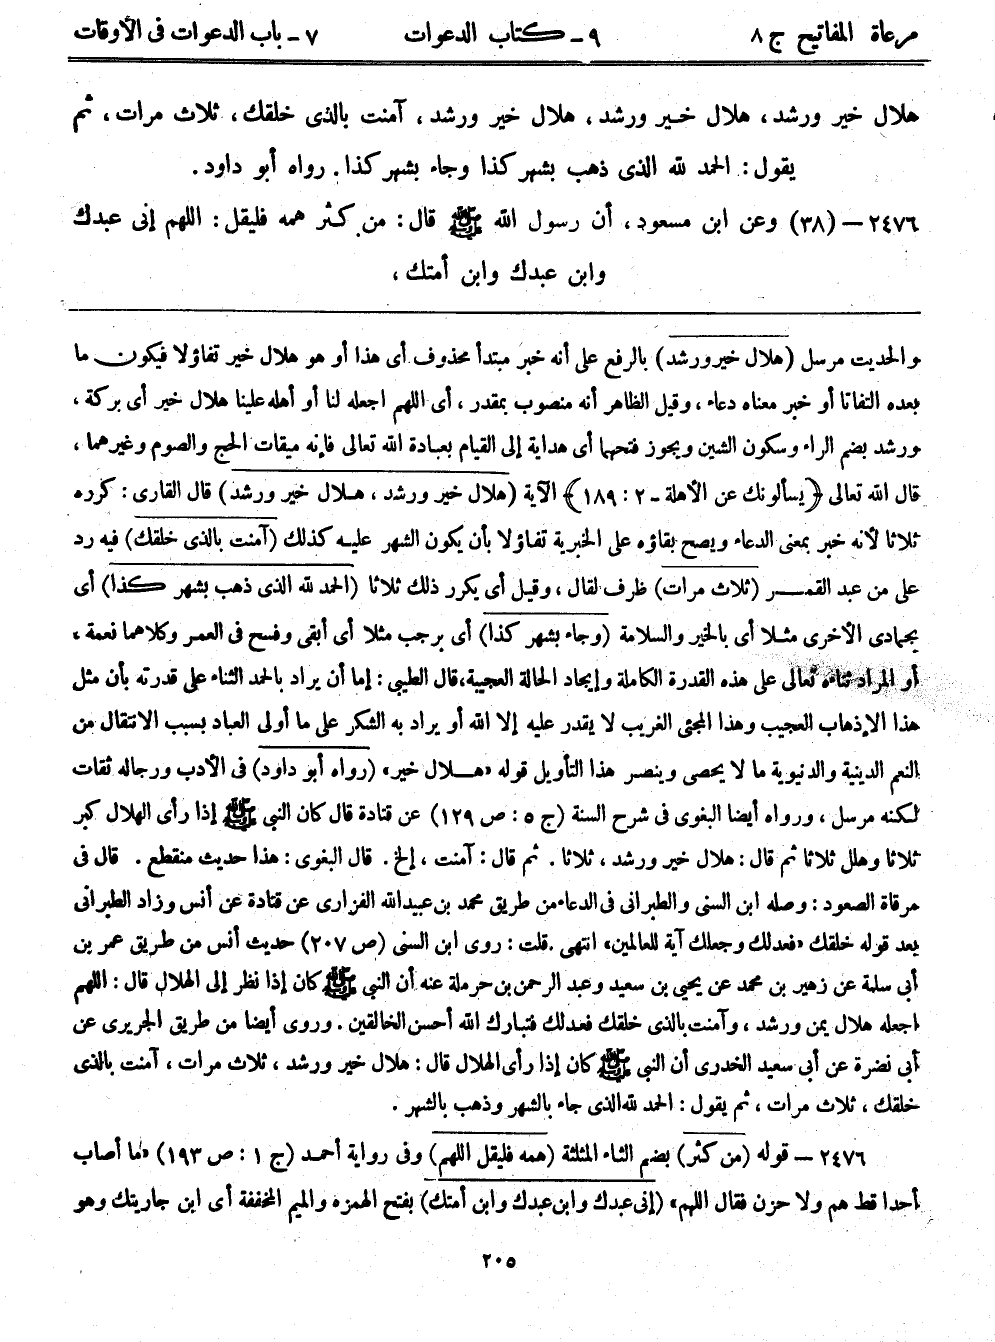 مرعاة المفاتيح ج ٨ ٩ - كتاب الدعوات ٧ - باب الدعوات فى الأوقات
هلال خير ورشد، هلال خير ورشد، هلال خير ورشد، آمنت بالذى خلقك، ثلاث مرات، ثم
يقول: الحمد لله الذى ذهب بشهر كذا وجاء بشهر كذا. رواه أبو داود.
٢٤٧٦ – (٣٨) وعن ابن مسعود، أن رسول الله ﷺ قال: من كثر همه فليقل: اللهم إنى عبدك
وابن عبدك وابن أمتك،
والحديث مرسل (هلال خير ورشد) بالرفع على أنه خبر مبتدأ محذوف أى هذا أو هو هلال خير تفاؤلا فيكون ما
بعده التفاتا أو خبر معناه دعاء، وقيل الظاهر أنه منصوب بمقدر، أى اللهم اجعله لنا أو أهله علينا هلال خير أى بركة،
ورشد بضم الراء وسكون الشين ويجوز فتحهما أى هداية إلى القيام بعبادة الله تعالى فإنه ميقات الحج والصوم وغيرهما،
قال الله تعالى ﴿يسألونك عن الأهلة - ٢: ١٨٩﴾ الآية (هلال خير ورشد، هلال خير ورشد) قال القارى: كرره
ثلاثا لأنه خبر بمعنى الدعاء ويصح بقاؤه على الخبرية تفاؤلا بأن يكون الشهر عليه كذلك (آمنت بالذى خلقك) فيه رد
على من عبد القمر (ثلاث مرات) ظرف لقال، وقيل أى يكرر ذلك ثلاثا (الحمد لله الذى ذهب بشهر كذا) أى
بجمادى الأخرى مثلا أى بالخير والسلامة (وجاء بشهر كذا) أى برجب مثلا أى أبقى وفسح فى العمر وكلاهما نعمة،
أو المراد ثناءه تعالى على هذه القدرة الكاملة وإيجاد الحالة العجيبة، قال الطيبى: إما أن يراد بالحمد الثناء على قدرته بأن مثل
هذا الإذهاب العجيب وهذا المجئى الغريب لا يقدر عليه إلا الله أو يراد به الشكر على ما أولى العباد بسبب الانتقال من
النعم الدينية والدنيوية ما لا يحصى وينصر هذا التأويل قوله «هلال خير» (رواه أبو داود) فى الأدب ورجاله ثقات
لكنه مرسل، ورواه أيضا البغوى فى شرح السنة (ج ٥: ص ١٢٩) عن قتادة قال كان النبى ﷺ إذا رأى الهلال كبر
ثلاثا وهلل ثلاثا ثم قال: هلال خير ورشد، ثلاثا. ثم قال: آمنت، إلخ. قال البغوى: هذا حديث منقطع. قال فى
مرقاة الصعود: وصله ابن السنى والطبرانى فى الدعاء من طريق محمد بن عبيدالله الفزارى عن قتادة عن أنس وزاد الطبرانى
بعد قوله خلقك «فعدلك وجعلك آية للعالمين» انتهى. قلت: روى ابن السنى (ص ٢٠٧) حديث أنس من طريق عمر بن
أبى سلمة عن زهير بن محمد عن يحيى بن سعيد وعبد الرحمن بن حرملة عنه أن النبى ﷺ كان إذا نظر إلى الهلال قال: اللهم
اجعله هلال يمن ورشد، وآمنت بالذى خلقك فعدلك فتبارك الله أحسن الخالقين. وروى أيضا من طريق الجريرى عن
أبى نضرة عن أبى سعيد الخدرى أن النبى ﷺ كان إذا رأى الهلال قال: هلال خير ورشد، ثلاث مرات، آمنت بالذى
خلقك، ثلاث مرات، ثم يقول: الحمد لله الذى جاء بالشهر وذهب بالشهر.
٢٤٧٦ – قوله (من كثر) بضم الثاء المثلثة (همه فليقل اللهم) وفى رواية أحمد (ج ١: ص ١٩٣) «ما أصاب
أحدا قط هم ولا حزن فقال اللهم» (إنى عبدك وابن عبدك وابن أمتك) بفتح الهمزه والميم المخففة أى ابن جاريتك وهو
٢٠٥